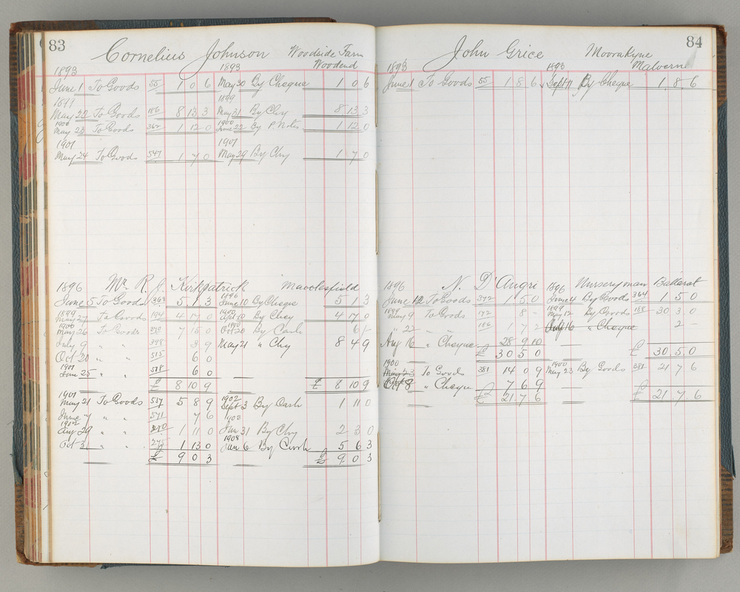 83
Cornelius Johnson Woodside Farm
Woodend
1893 1893
June 1 To Goods 55 1 0 6 May 30 By Cheque 1 0 6
1899 1899
May 22 To Goods 8 13 3 May 31 By Chq 8 13 3
1900 1900
May 23 To Goods 364 1 12 0 June 22 By P. Notes 1 12 0
1901 1901
May 24 To Goods 547 1 7 0 May 29 By Chq 1 7 0
1896 Mr R. J. Kirkpatrick Macclesfield
June 5 To Goods 369 5 1 3 June 10 By Cheque 5 1 3
1899
May 27 To Goods 4 17 0 By Chq 4 17 9
1900
May 26 To Goods 7 15 0 Oct 20 By Cash 6/-
July 9 " " 3 9 May 21 " Chq 8 4 9
Oct 20 " " 6 0
1901
Jan 25 " " 6 0
£ 8 10 9 £ 8 10 9
1901 1902
May 21 To Goods 537 5 8 9 Sept 3 By Cash 1 11 0
June 7 " " 571 7 6
1902
Aug 29 " " 1 11 0 Jan 31 By Chq 2 3 0
Oct 31 " " 1 13 0 Jan 6 By Cash 5 6 3
£ 9 0 3 £ 9 0 3
84
John Grice Moorakyne
Malvern
1893 1893
To Goods 55 1 8 6 Sept 11 By Cheque 1 8 6
1896 N. D'Angri 1896 Nurseryman Ballarat
June 12 To Goods 372 1 5 0 June 4 By Goods 364 1 5 0
1899
May 9 To Goods 8 - By Goods 30 3 0
" 22 " " 1 7 2 Aug 16 " Cheque 2 -
Aug 16 " Cheque 28 9 10
£ 30 5 0 £ 30 5 0
1900 1900
To Goods 381 14 0 9 May 23 By Goods 381 21 7 6
" Cheque 7 6 9
£ 21 7 6 £ 21 7 6